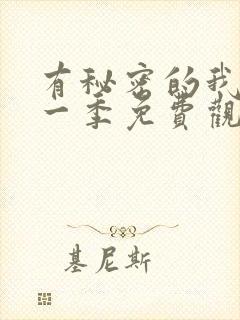 有秘密的我
一季免費觀
基尼斯